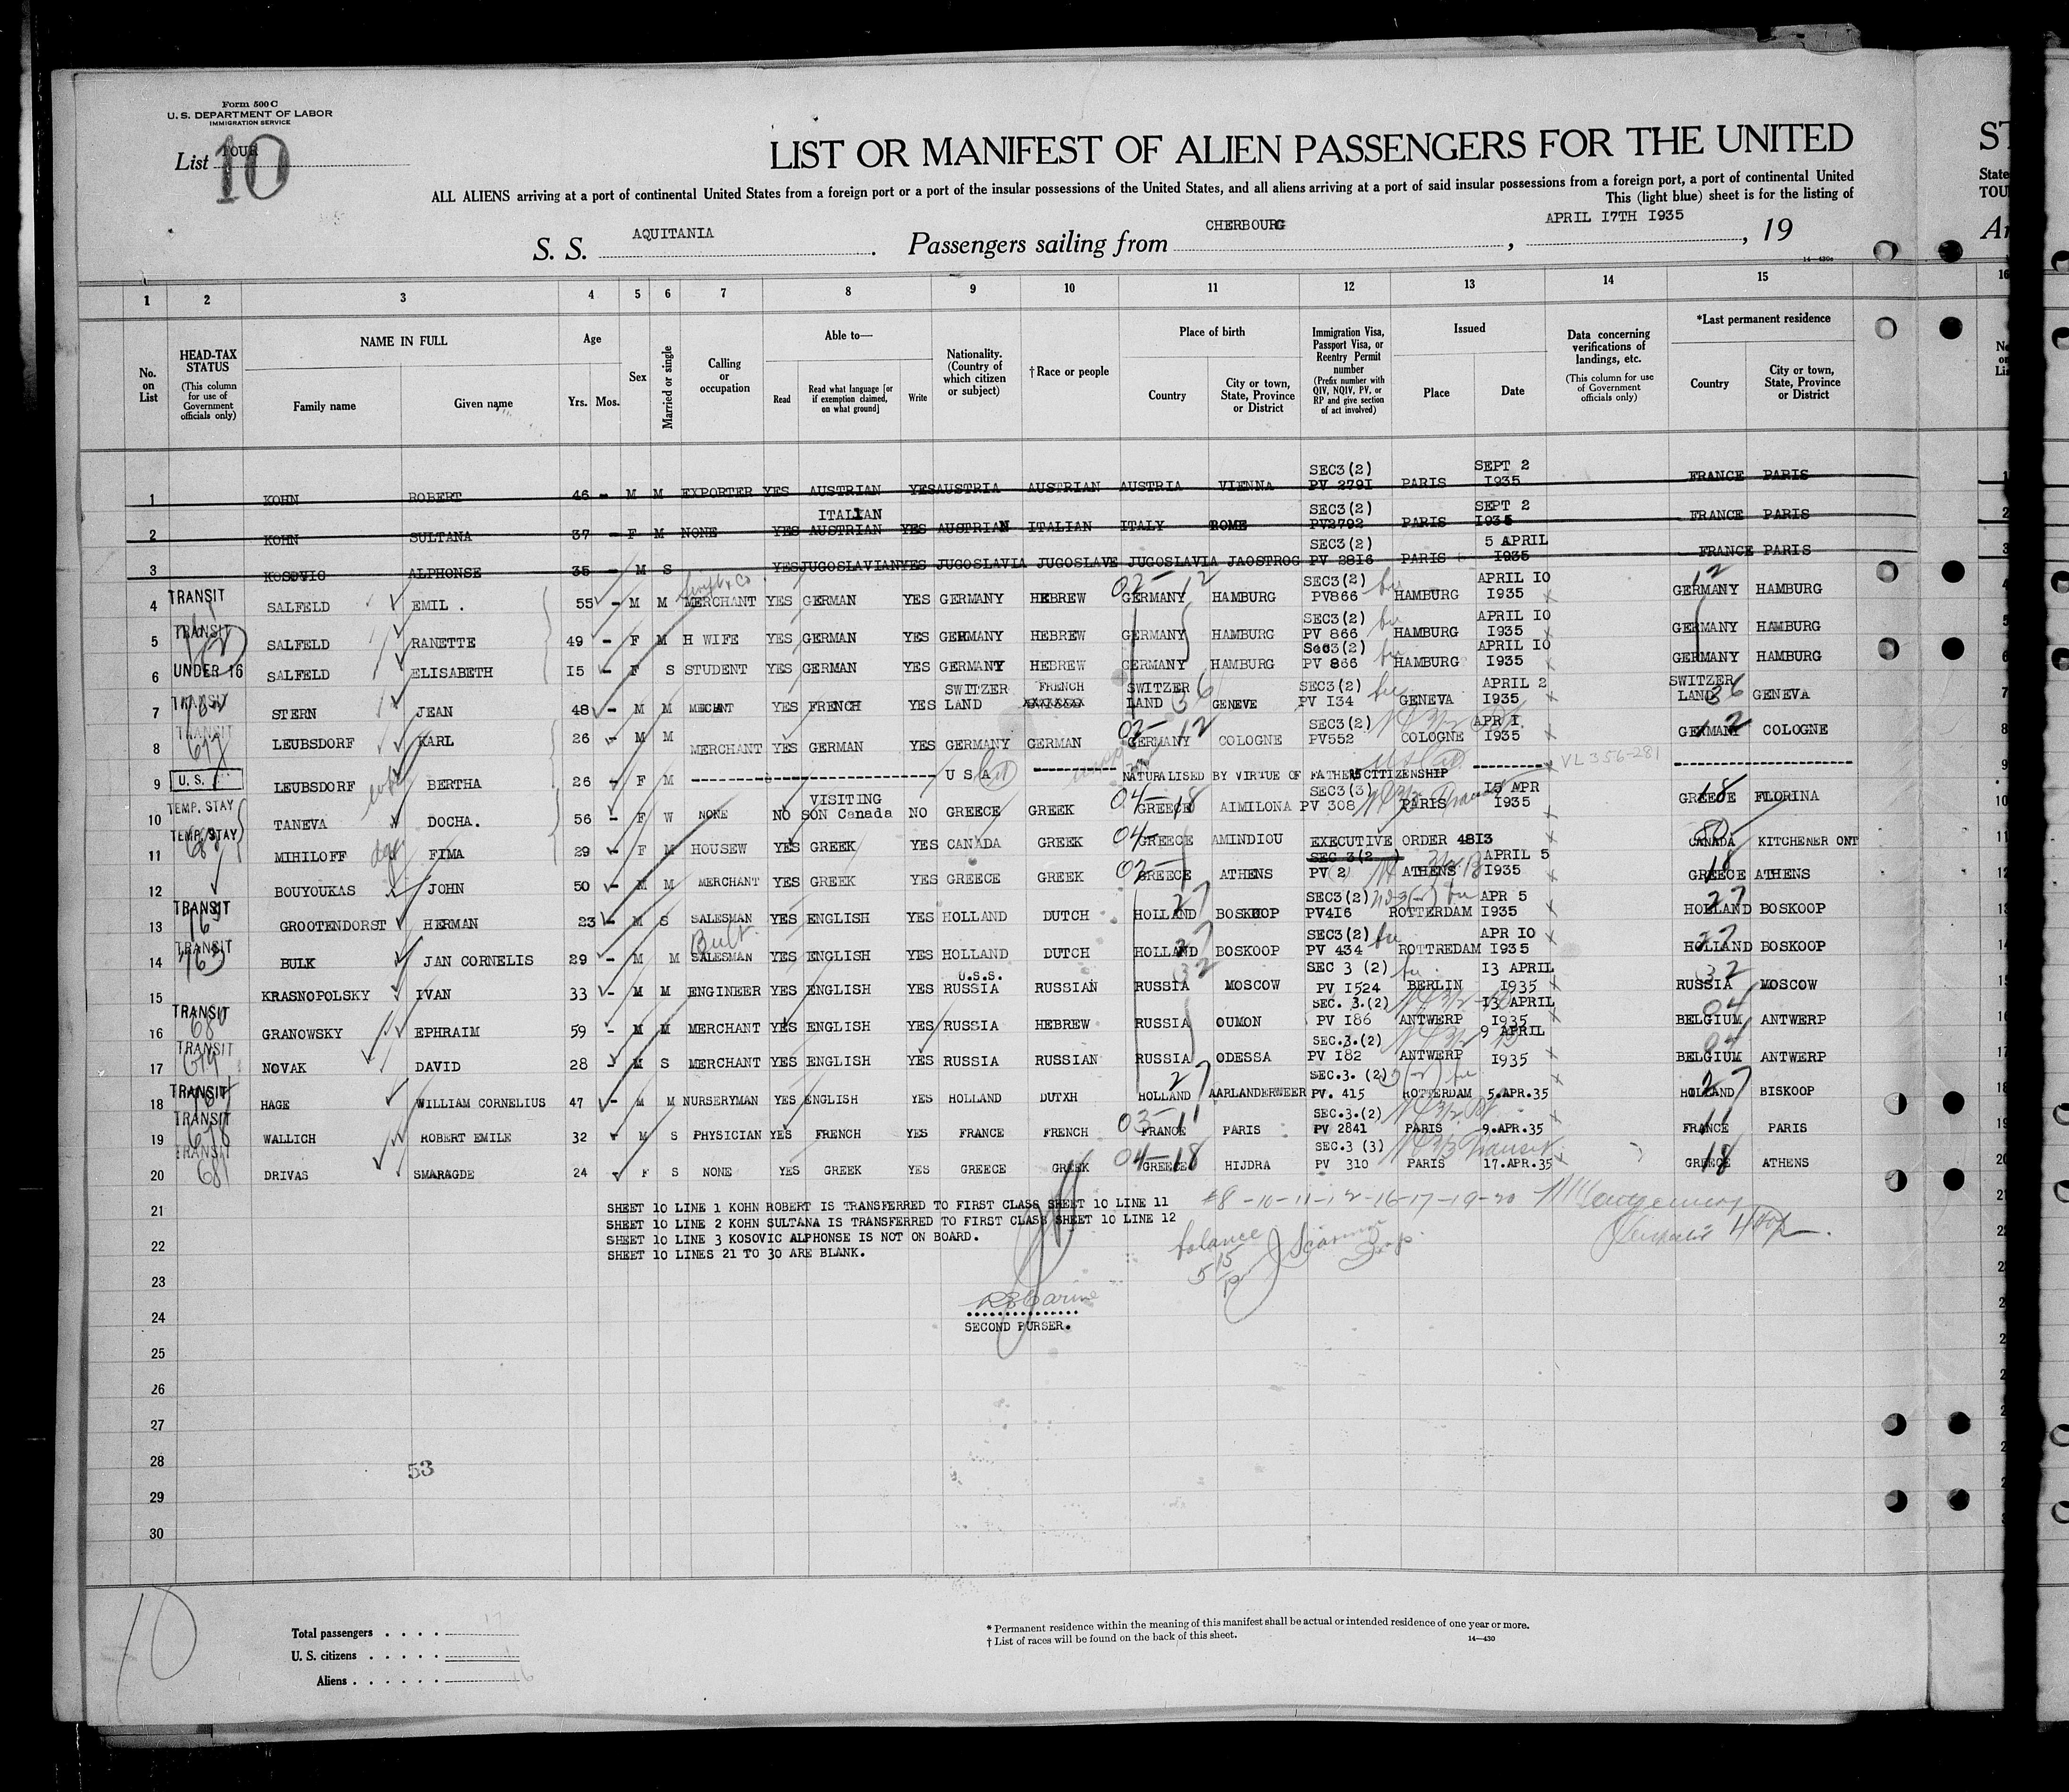 Form 500 C
U. S. DEPARTMENT OF LABOR
IMMIGRATION SERVICE
List TOUR
10
LIST OR MANIFEST OF ALIEN PASSENGERS FOR THE UNITED
ALL ALIENS arriving at a port of continental United States from a foreign port or a port of the insular possessions of the United States, and all aliens arriving at a port of said insular possessions from a foreign port, a port of continental United
This (light blue) sheet is for the listing of
S. S. AQUITANIA. Passengers sailing from CHERBOURG, APRIL I7TH I935, 19
14—430a
1 2 3 4 5 6 7 8 9 10 11 12 13 14 15
No. on List
HEAD-TAX STATUS (This column for use of Government officials only)
NAME IN FULL
Family name Given name
Age
Yrs. Mos.
Sex
Married or single
Calling or occupation
Able to—
Read Read what language [or if exemption claimed, on what ground] Write
Nationality. (Country of which citizen or subject)
†Race or people
Place of birth
Country City or town, State, Province or District
Immigration Visa, Passport Visa, or Reentry Permit number (Prefix number with QIV, NQIV, PV, or RP and give section of act involved)
Issued
Place Date
Data concerning verifications of landings, etc. (This column for use of Government officials only)
*Last permanent residence
Country City or town, State, Province or District
1 KOHN ROBERT 46 - M M EXPORTER YES AUSTRIAN YES AUSTRIA AUSTRIAN AUSTRIA VIENNA SEC3(2) PV 279I PARIS SEPT 2 I935 FRANCE PARIS
2 KOHN SULTANA 37 - F M NONE YES ITALIAN AUSTRIAN YES AUSTRIAN ITALIAN ITALY ROME SEC3(2) PV2792 PARIS SEPT 2 I935 FRANCE PARIS
3 KOSOVIC ALPHONSE 35 - M S YES JUGOSLAVIAN YES JUGOSLAVIA JUGOSLAVE JUGOSLAVIA JAOSTROG SEC3(2) PV 28I6 PARIS 5 APRIL I935 FRANCE PARIS
4 TRANSIT SALFELD EMIL . 55 - M M MERCHANT YES GERMAN YES GERMANY HEBREW GERMANY HAMBURG SEC3(2) PV866 HAMBURG APRIL IO I935 GERMANY HAMBURG
5 TRANSIT SALFELD RANETTE 49 - F M H WIFE YES GERMAN YES GERMANY HEBREW GERMANY HAMBURG SEC3(2) PV 866 HAMBURG APRIL IO I935 GERMANY HAMBURG
6 UNDER 16 SALFELD ELISABETH I5 - F S STUDENT YES GERMAN YES GERMANY HEBREW GERMANY HAMBURG Sec3(2) PV 866 HAMBURG APRIL IO I935 GERMANY HAMBURG
7 TRANSIT STERN JEAN 48 - M M MECHANT YES FRENCH YES SWITZER LAND FRENCH XXXXXXX SWITZER LAND GENEVE SEC3(2) PV I34 GENEVA APRIL 2 I935 SWITZER LAND GENEVA
8 TRANSIT LEUBSDORF KARL 26 - M M MERCHANT YES GERMAN YES GERMANY GERMAN GERMANY COLOGNE SEC3(2) PV552 COLOGNE APR I. I935 GERMANY COLOGNE
9 U. S. LEUBSDORF BERTHA 26 - F M U S A NATURALISED BY VIRTUE OF FATHERS CTTIZENSHIP VL 356-281
10 TEMP. STAY TANEVA DOCHA. 56 - F W NONE NO VISITING SON Canada NO GREECE GREEK GREECE AIMILONA SEC3(3) PV 308 PARIS I5 APR I935 GREECE FLORINA
11 TEMP. STAY MIHILOFF FIMA 29 - F M HOUSEW YES GREEK YES CANADA GREEK GREECE AMINDIOU EXECUTIVE ORDER 48I3 CANADA KITCHENER ONT
12 BOUYOUKAS JOHN 50 - M M MERCHANT YES GREEK YES GREECE GREEK GREECE ATHENS SEC 3(2 ) PV 2 ATHENS APRIL 5 I935 GREECE ATHENS
13 TRANSIT GROOTENDORST HERMAN 23 - M S SALESMAN YES ENGLISH YES HOLLAND DUTCH HOLLAND BOSKOOP SEC3(2) PV4I6 ROTTERDAM APR 5 I935 HOLLAND BOSKOOP
14 TRANSIT BULK JAN CORNELIS 29 - M M SALESMAN YES ENGLISH YES HOLLAND DUTCH HOLLAND BOSKOOP SEC3(2) PV 434 ROTTREDAM APR IO I935 HOLLAND BOSKOOP
15 KRASNOPOLSKY IVAN 33 - M M ENGINEER YES ENGLISH YES U.S.S. RUSSIA RUSSIAN RUSSIA MOSCOW SEC 3 (2) PV I524 BERLIN I3 APRIL I935 RUSSIA MOSCOW
16 TRANSIT GRANOWSKY EPHRAIM 59 - M M MERCHANT YES ENGLISH YES RUSSIA HEBREW RUSSIA OUMON SEC. 3.(2) PV I86 ANTWERP I3 APRIL I935 BELGIUM ANTWERP
17 TRANSIT NOVAK DAVID 28 - M S MERCHANT YES ENGLISH YES RUSSIA RUSSIAN RUSSIA ODESSA SEC.3.(2) PV I82 ANTWERP 9 APRIL I935 BELGIUM ANTWERP
18 TRANSIT HAGE WILLIAM CORNELIUS 47 - M M NURSERYMAN YES ENGLISH YES HOLLAND DUTXH HOLLAND AARLANDERWEER SEC.3. (2) PV. 415 ROTTERDAM 5.APR.35 HOLLAND BISKOOP
19 TRANSIT WALLICH ROBERT EMILE 32 - M S PHYSICIAN YES FRENCH YES FRANCE FRENCH FRANCE PARIS SEC.3.(2) PV 2841 PARIS 9.APR.35 FRANCE PARIS
20 TRANSIT DRIVAS SMARAGDE 24 F S NONE YES GREEK YES GREECE GREEK GREECE HIJDRA SEC.3 (3) PV 310 PARIS 17.APR.35 GREECE ATHENS
21 SHEET 10 LINE 1 KOHN ROBERT IS TRANSFERRED TO FIRST CLASS SHEET 10 LINE 11
SHEET 10 LINE 2 KOHN SULTANA IS TRANSFERRED TO FIRST CLASS SHEET 10 LINE 12
22 SHEET 10 LINE 3 KOSOVIC ALPHONSE IS NOT ON BOARD.
SHEET 10 LINES 21 TO 30 ARE BLANK.
#8-10-11-12-16-17-19-20
balance
23
24
SECOND PURSER.
25
26
27
28
53
29
30
10
Total passengers . . . . 17
U. S. citizens . . . . . 1
Aliens . . . . . . 16
* Permanent residence within the meaning of this manifest shall be actual or intended residence of one year or more.
† List of races will be found on the back of this sheet.
14—430